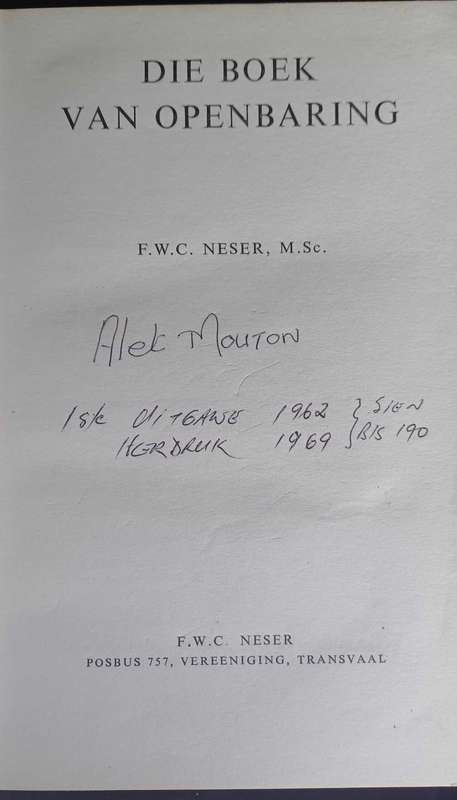 DIE BOEK
VAN OPENBARING
F.W.C. NESER, M.Sc.
Alek Mouton
1ste UITGAWE 1962 } SIEN
HERDRUK 1969 } BLS 190
F.W.C. NESER
POSBUS 757, VEREENIGING, TRANSVAAL